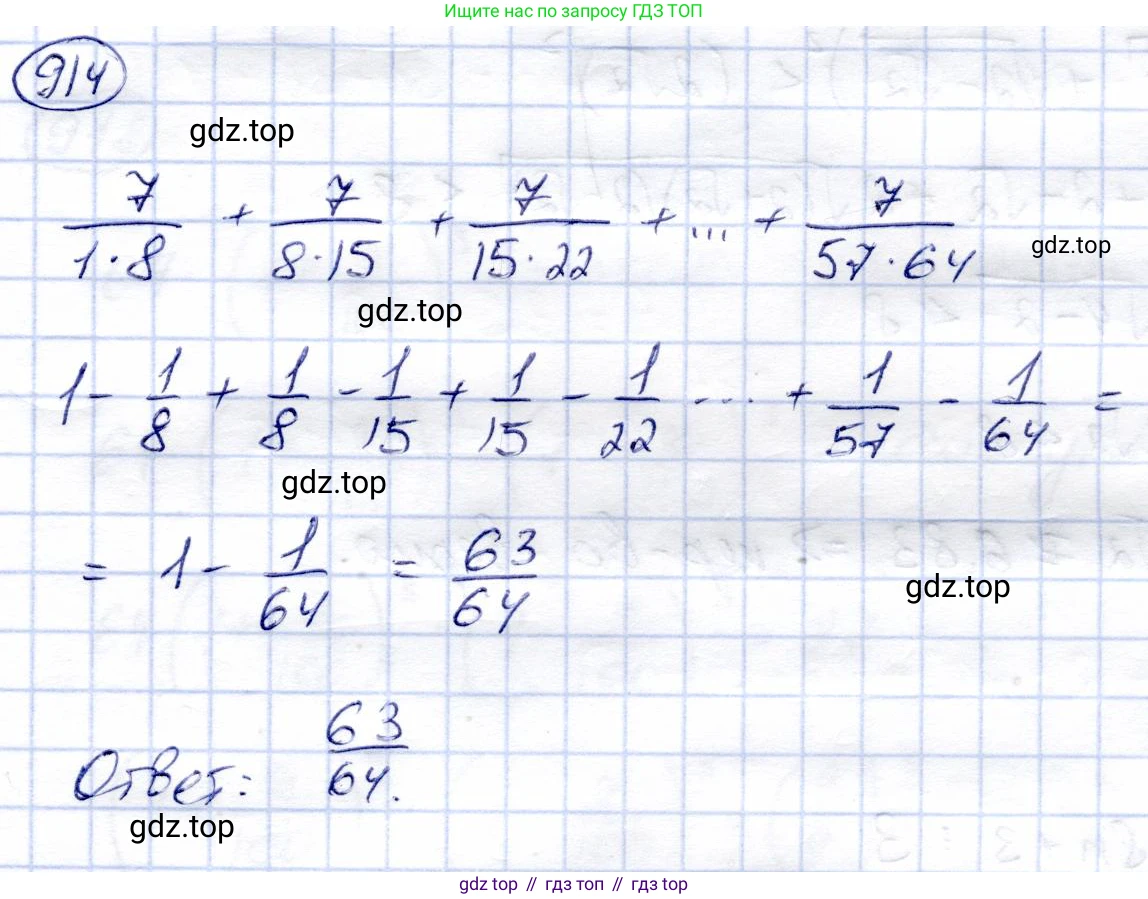 Ищите нас по запросу ГДЗ ТОП
914
gdz.top
7/(1·8) + 7/(8·15) + 7/(15·22) + ... + 7/(57·64)
gdz.top
gdz.top
1 - 1/8 + 1/8 - 1/15 + 1/15 - 1/22 ... + 1/57 - 1/64 =
gdz.top
= 1 - 1/64 = 63/64
gdz.top
Ответ: 63/64.
gdz.top
gdz top // гдз топ // gdz top